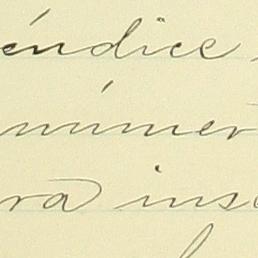 éndice
númer
ra ins